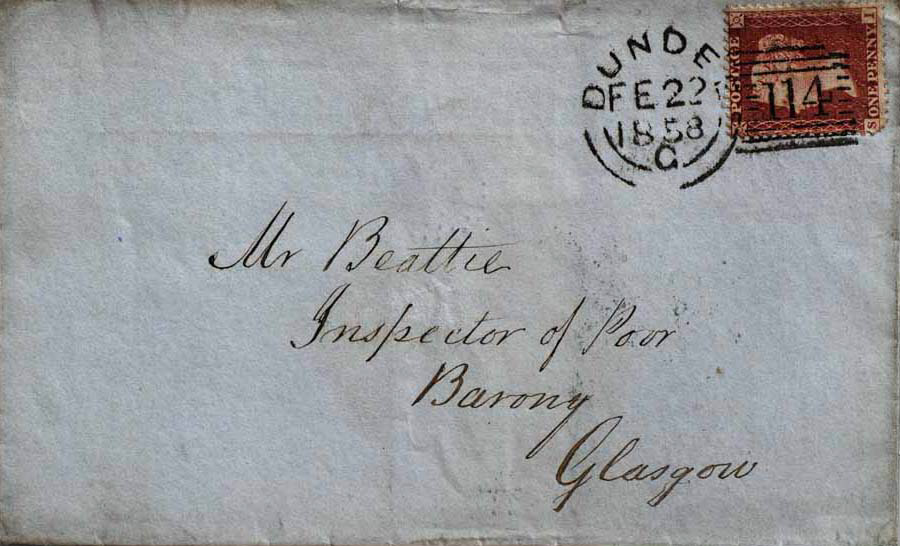 DUNDE
FE 22
1858
C
114
POSTAGE
ONE PENNY
I
S
Mr Beattie
Inspector of Poor
Barony
Glasgow